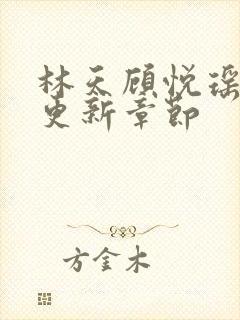 林天顾悦瑶
更新章节
方金木